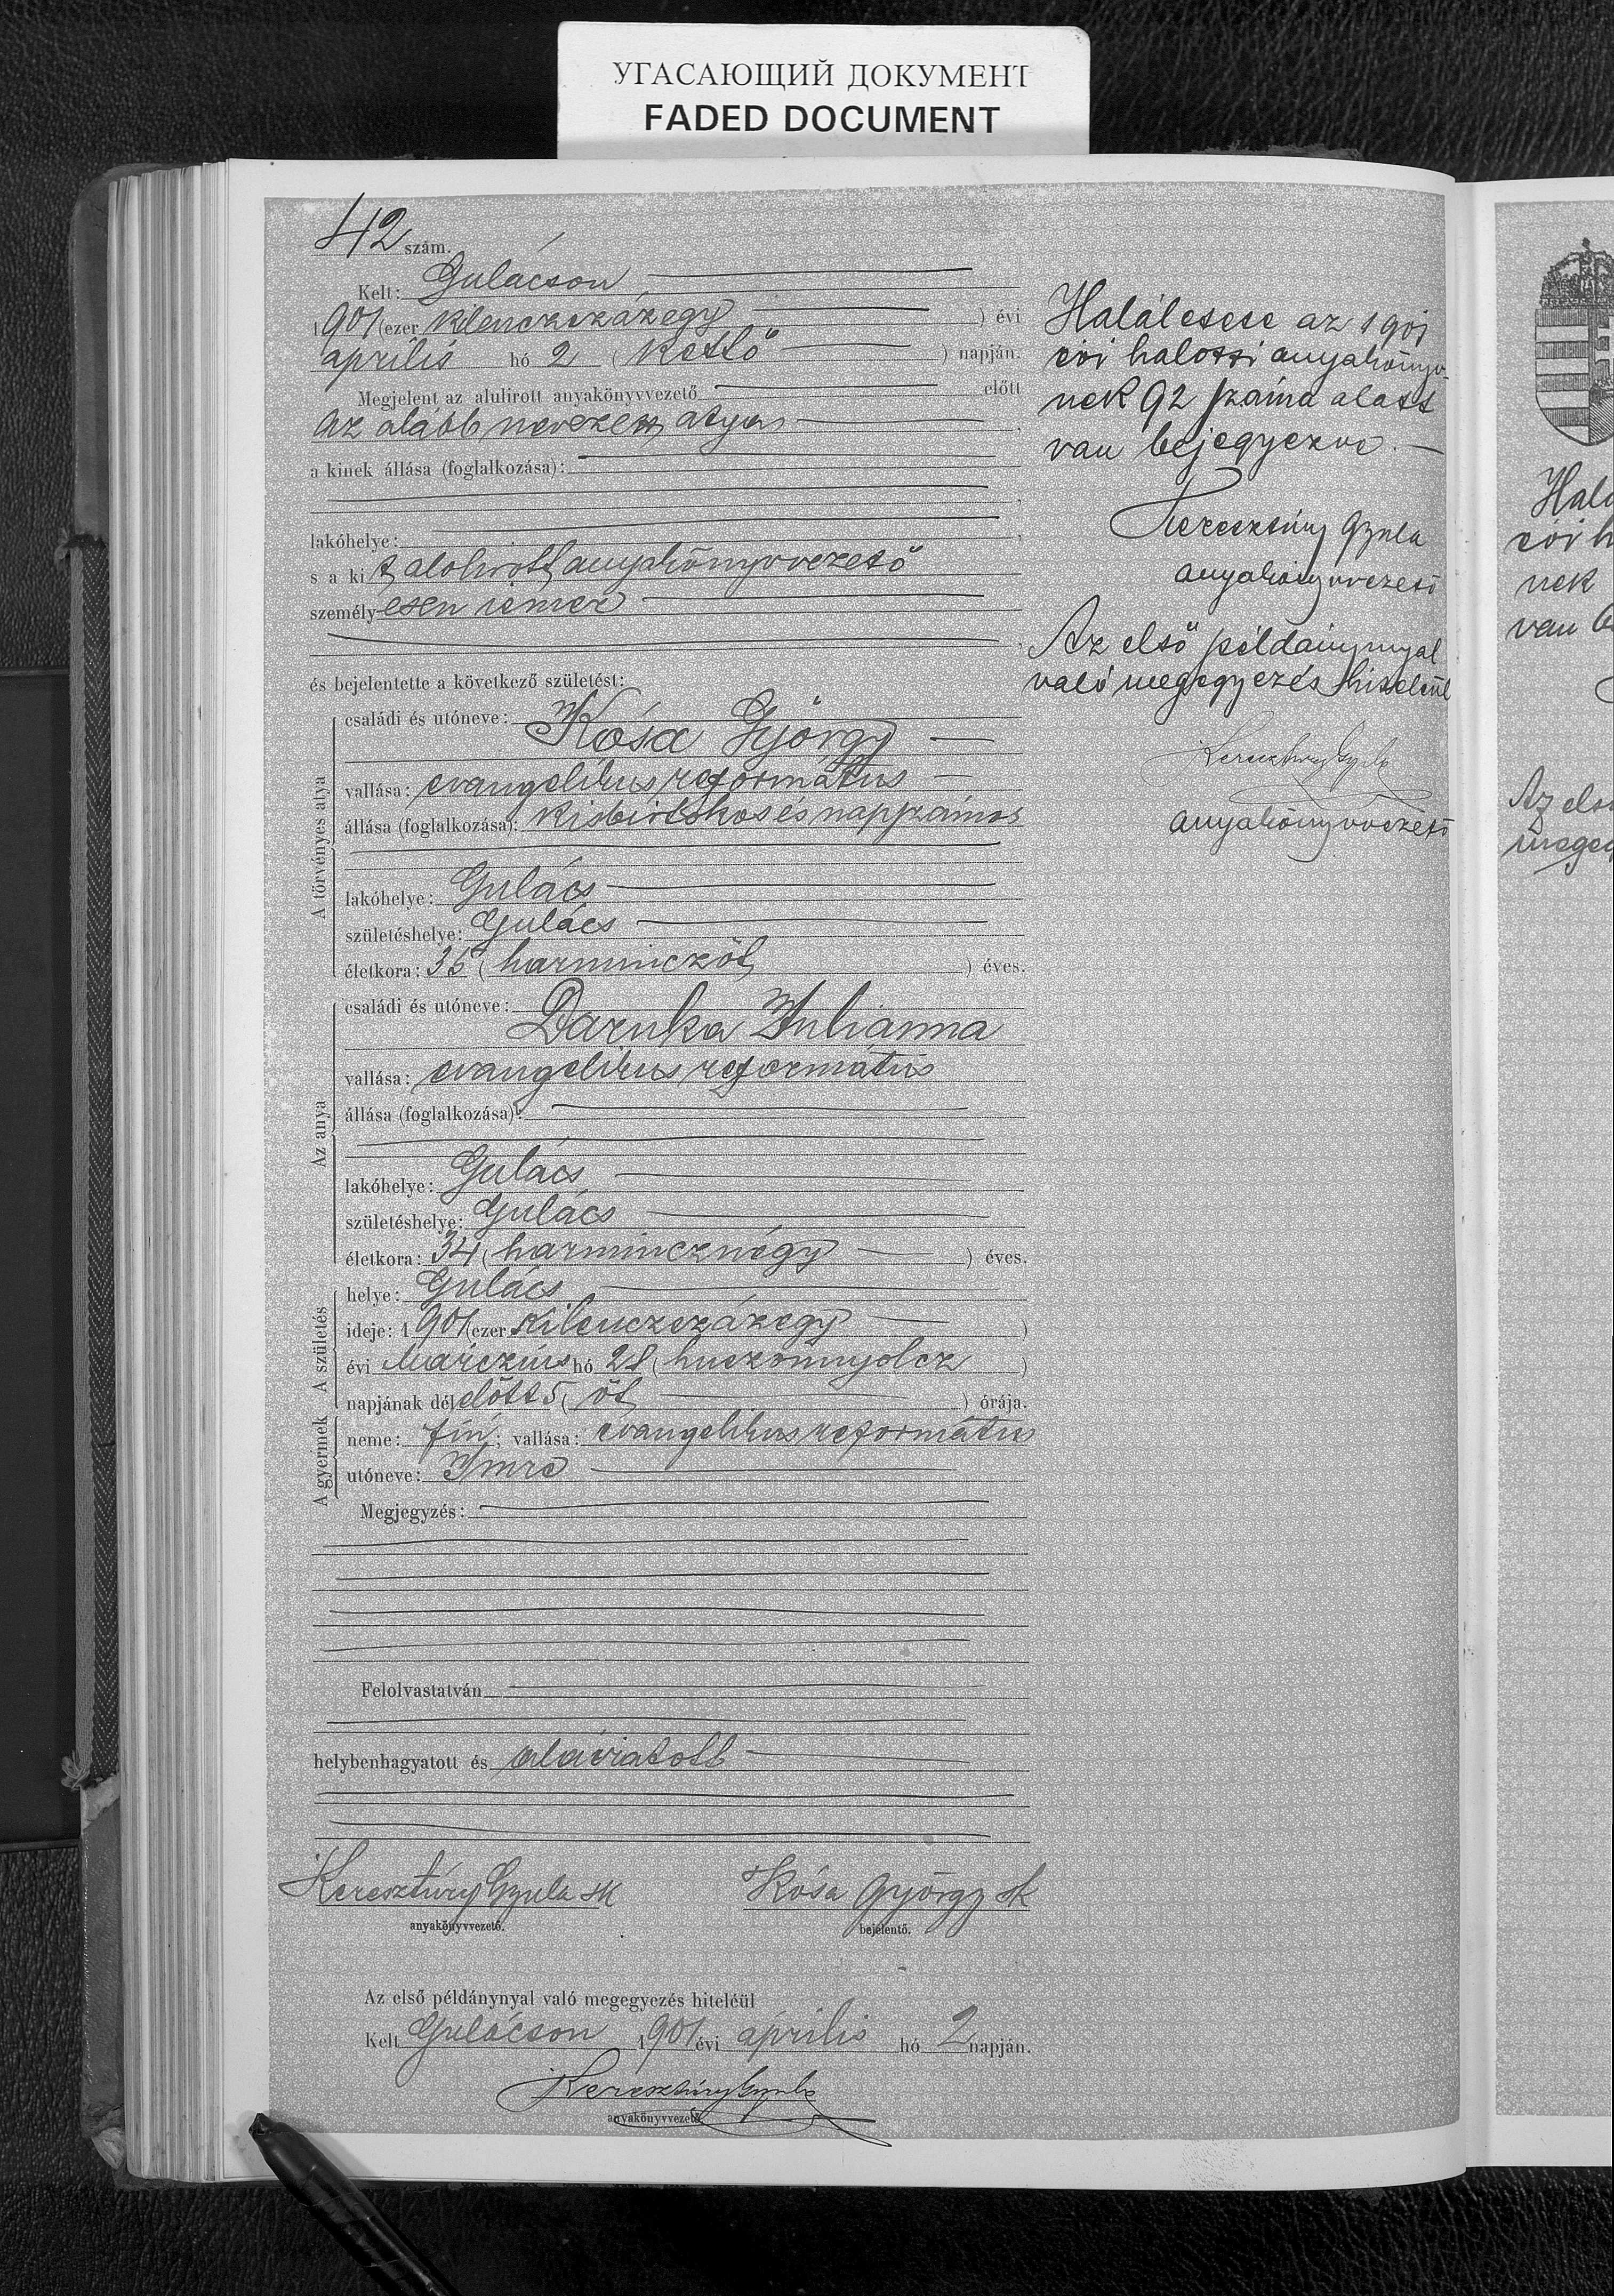 УГАСАЮЩИЙ ДОКУМЕНТ
FADED DOCUMENT
42 szám.
Kelt: Gulácson
1901 (ezer kilenczszázegy ) évi
április hó 2 (kettő ) napján.
Megjelent az alulirott anyakönyvvezető előtt
az alább nevezett atya
a kinek állása (foglalkozása):
lakóhelye:
s a kit alolirott anyakönyvvezető
személyesen ismer
és bejelentette a következő születést:
A törvényes atya
családi és utóneve:
Kósa György
vallása: evangélikus református
állása (foglalkozása): kisbirtokos és napszámos
lakóhelye: Gulács
születéshelye: Gulács
életkora: 35 (harminczöt ) éves.
Az anya
családi és utóneve:
Daruka Julianna
vallása: evangélikus református
állása (foglalkozása):
lakóhelye: Gulács
születéshelye: Gulács
életkora: 34 (harmincznégy ) éves.
A születés
helye: Gulács
ideje: 1901 (ezer kilenczszázegy )
évi márczius hó 28 (huszonnyolcz )
napjának délelőtt 5 (öt ) órája.
A gyermek
neme: fiú; vallása: evangélikus református
utóneve: Imre
Megjegyzés:
Felolvastatván
helybenhagyatott és aláiratott
Keresztúry Gyula sk
anyakönyvvezető.
Kósa György sk
bejelentő.
Az első példánynyal való megegyezés hiteléül
Kelt Gulácson 1901 évi április hó 2 napján.
Keresztúry Gyula
anyakönyvvezető
Halálesese az 1901
évi halotti anyakönyv
nek 92 száma alatt
van bejegyezve.
Keresztúry Gyula
anyakönyvvezető
Az első példánynyal
való megegyezés hiteléül
Keresztúry Gyula
anyakönyvvezető
Halá
évi h
nek
van b
Az els
megeg